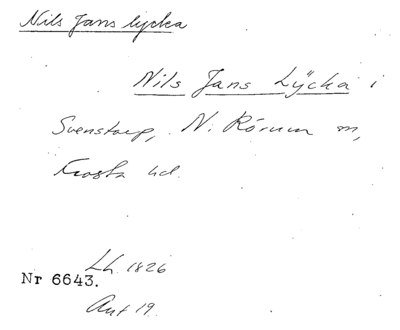 Nils Jans lycka
Nils Jans Lÿcka i
Svenstorp, N. Rörum m,
Frosta hd.
Lh. 1826
Nr 6643.
Ant 19.